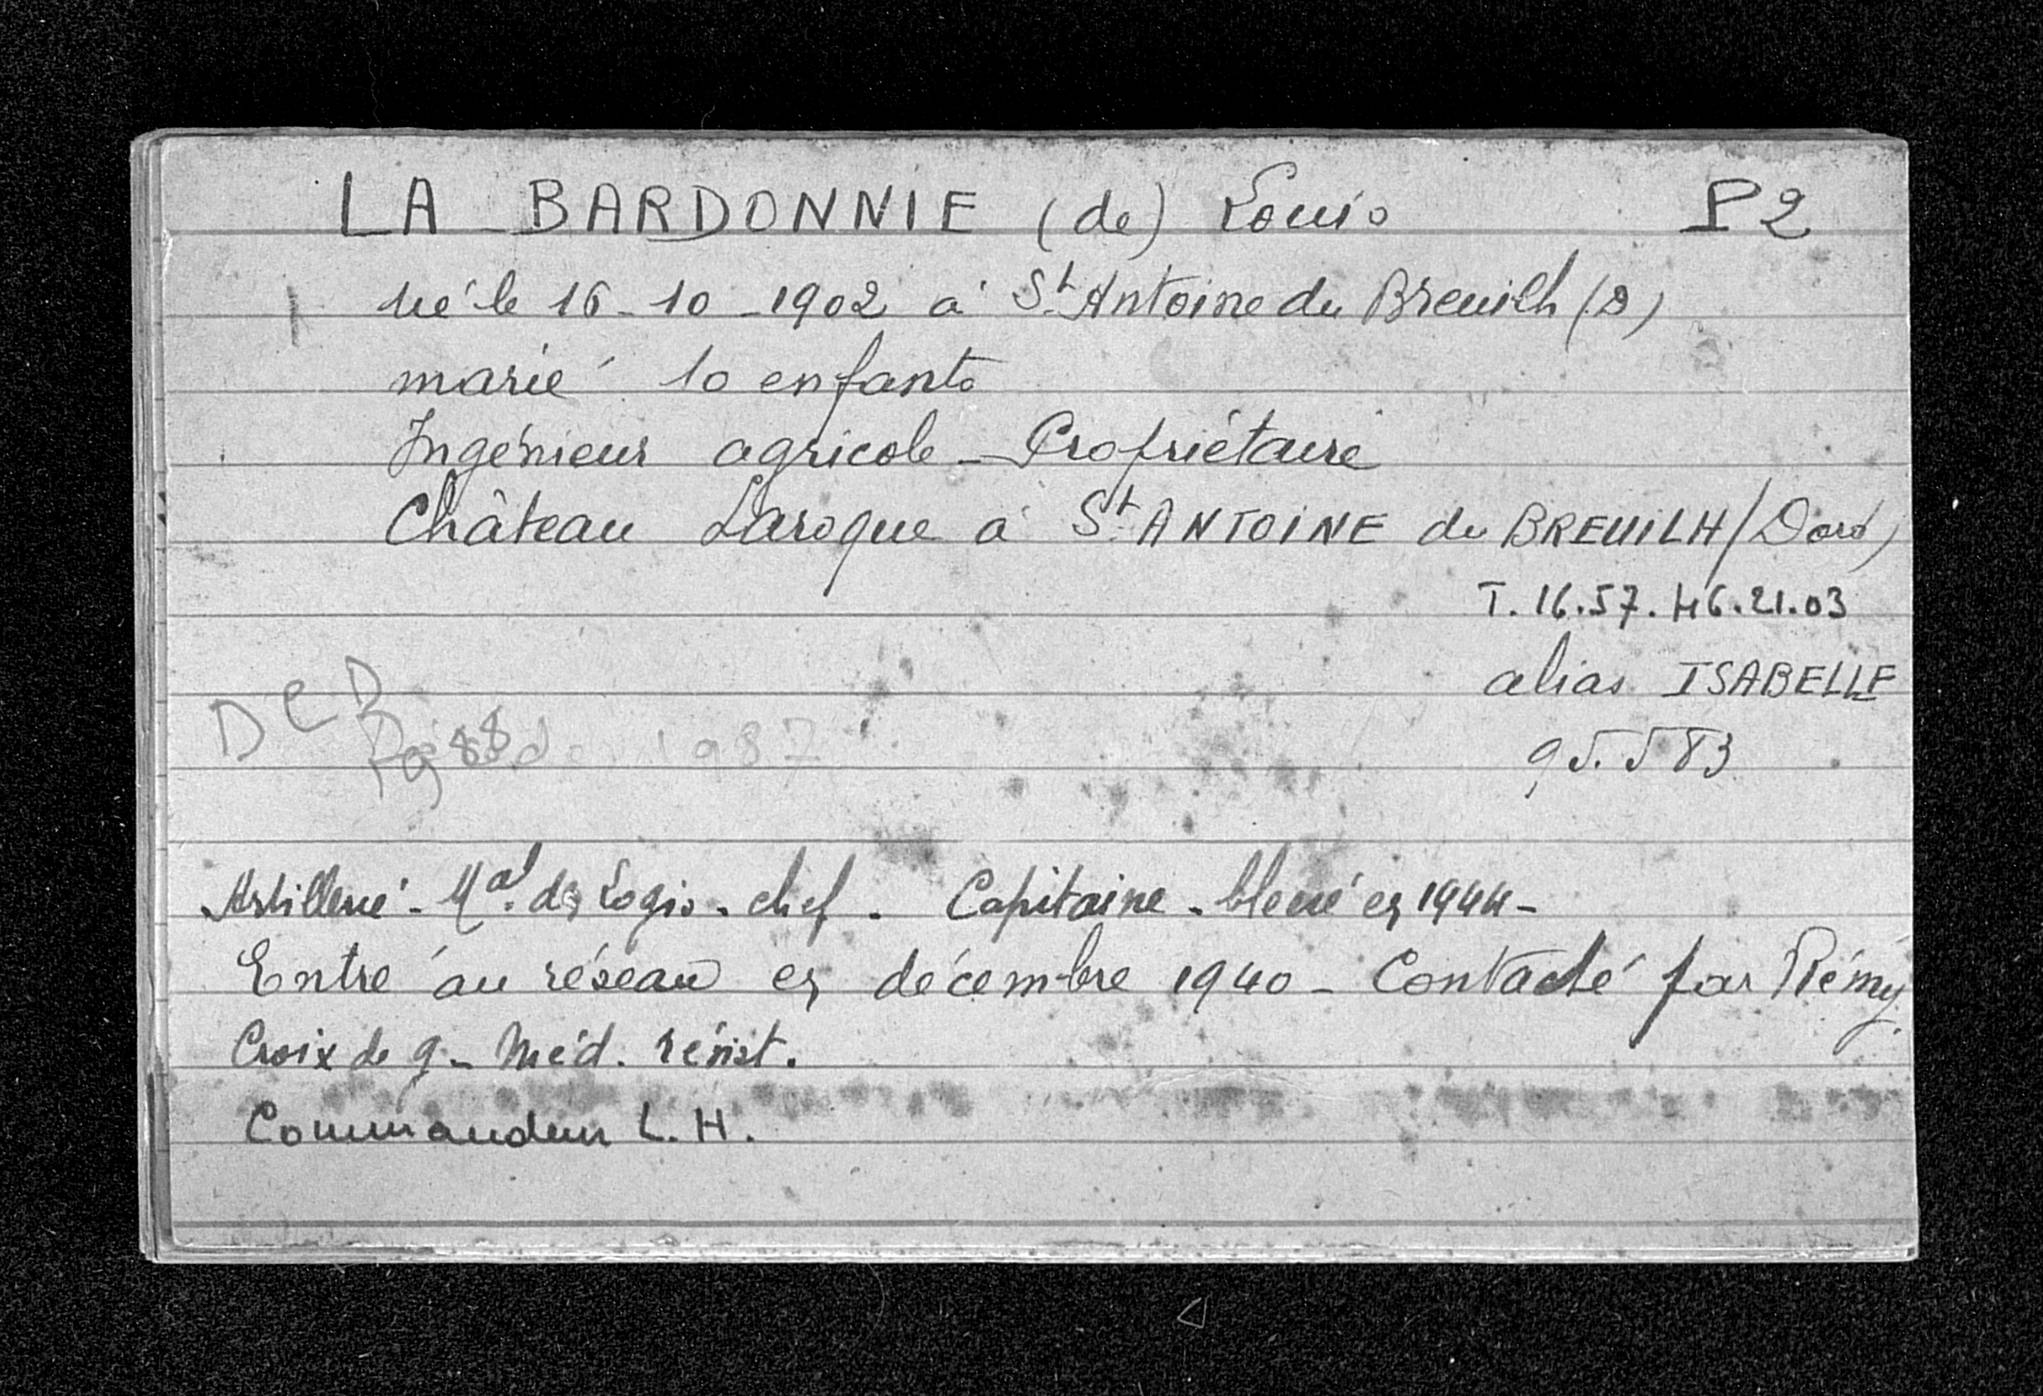 LA BARDONNIE (de) Louis P2
né le 16-10-1902 à St Antoine du Breuilh (D)
marié 10 enfants
Ingénieur agricole - Propriétaire
Château Laroque à St ANTOINE du BREUILH (Dord)
T. 16.57.46.21.03
alias ISABELLE
DCD
1988 1987
95.583
Artillerie - Mal. des Logis - chef. Capitaine - blessé en 1944 -
Entré au réseau en décembre 1940 - Contacté par Rémy.
Croix de g - Méd. résist.
Commandeur L. H.